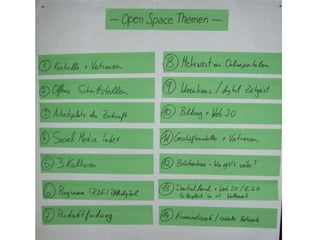 — Open Space Themen —
① Kontrolle + Vertrauen
② Offene Schnittstellen
③ Arbeitsplatz der Zukunft
④ Social Media Index
⑤ 3 Kulturen
⑥ Programm (ZDF) digital
⑦ Produktfindung
⑧ Mehrwert von Onlineportalen
⑨ Ideenhaus / digital Zeitgeist
⑩ Bildung + Web 2.0
⑪ Geschäftsmodelle + Vertrauen
⑫ Bücherbus + Wie geht's weiter?
⑬ Deutschland + Web 2.0 / E 2.0
Wettbewerb
⑭ Frauennetzwerk / soziales Netzwerk